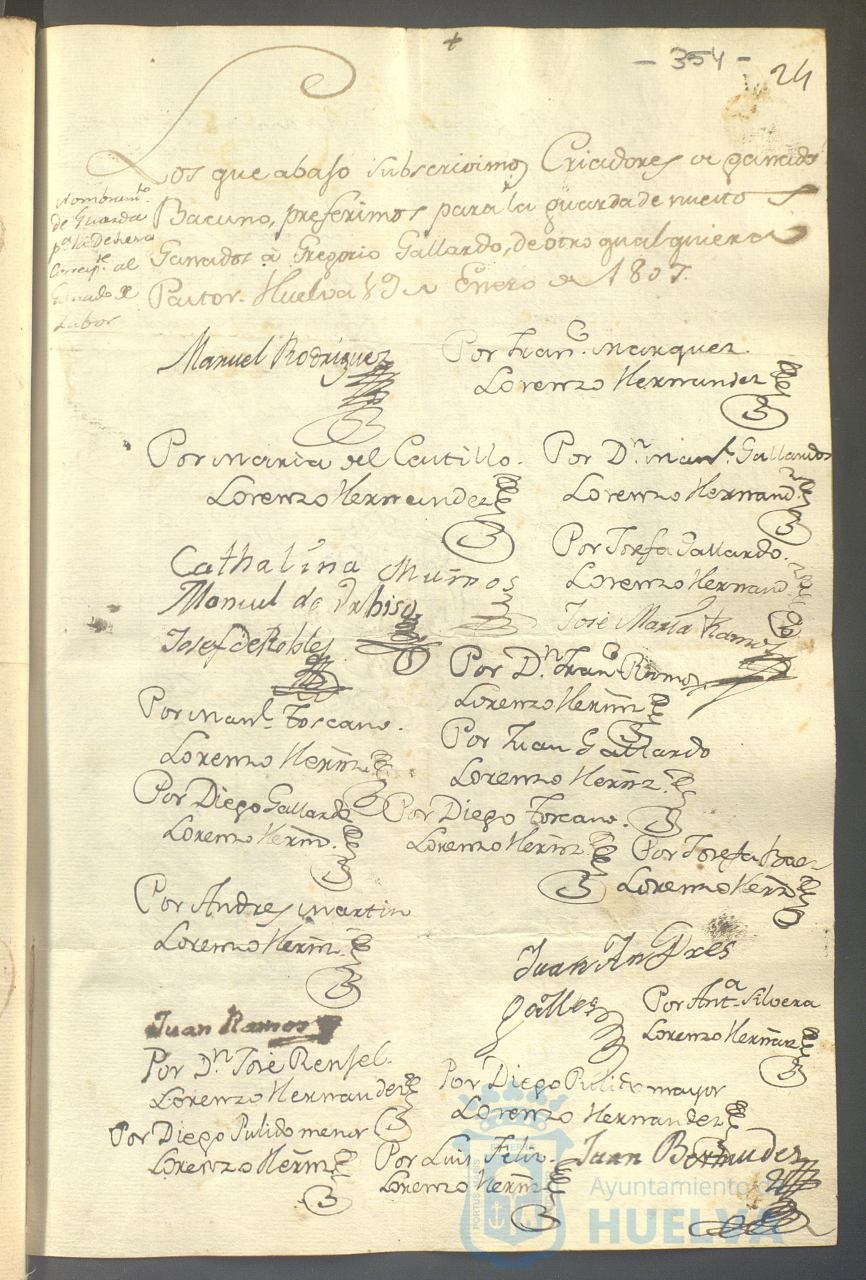 +
- 354 -
24
Los que abaso subscrivimos Criadores de ganado
Bacuno, preferimos para la guarda de nuestros
Ganados à Gregorio Gallardo, de otro qualquiera
Pastor. Huelva 9 de Enero de 1807.
Nombram.to
de Guarda
p.a la Dehesa
al
Ganado de
Labor
Manuel Rodriguez
Por Fran.co Marquez.
Lorenzo Hernandez
Por Maria del Castillo.
Lorenzo Hernandez
Por D.n Man.l Gallardo
Lorenzo Hernand.z
Cathalina Muños
Por Josefa Gallardo.
Lorenzo Hernand.z
Manuel de
José María Ramos
Josef de Robles
Por D.n Fran.co Ramos
Lorenzo Hernz
Por Man.l Toscano.
Lorenzo Hernz
Por Juan Gallardo
Lorenzo Hernz
Por Diego Gallardo
Lorenzo Hern.
Por Diego Toscano.
Lorenzo Hernz
Por Josefa Baez
Lorenzo Hernz
Por Andres Martin
Lorenzo Hernz
Juan Andres
Por Ant.a Silvera
Lorenzo Hernz
Juan Ramos
Por D.n José Rensel.
Lorenzo Hernandez
Por Diego Pulido mayor
Lorenzo Hernandez
Por Diego Pulido menor
Lorenzo Hernz
Por Luis Feliz.
Lorenzo Hernz
Juan Bermudez
Ayuntamiento de
HUELVA